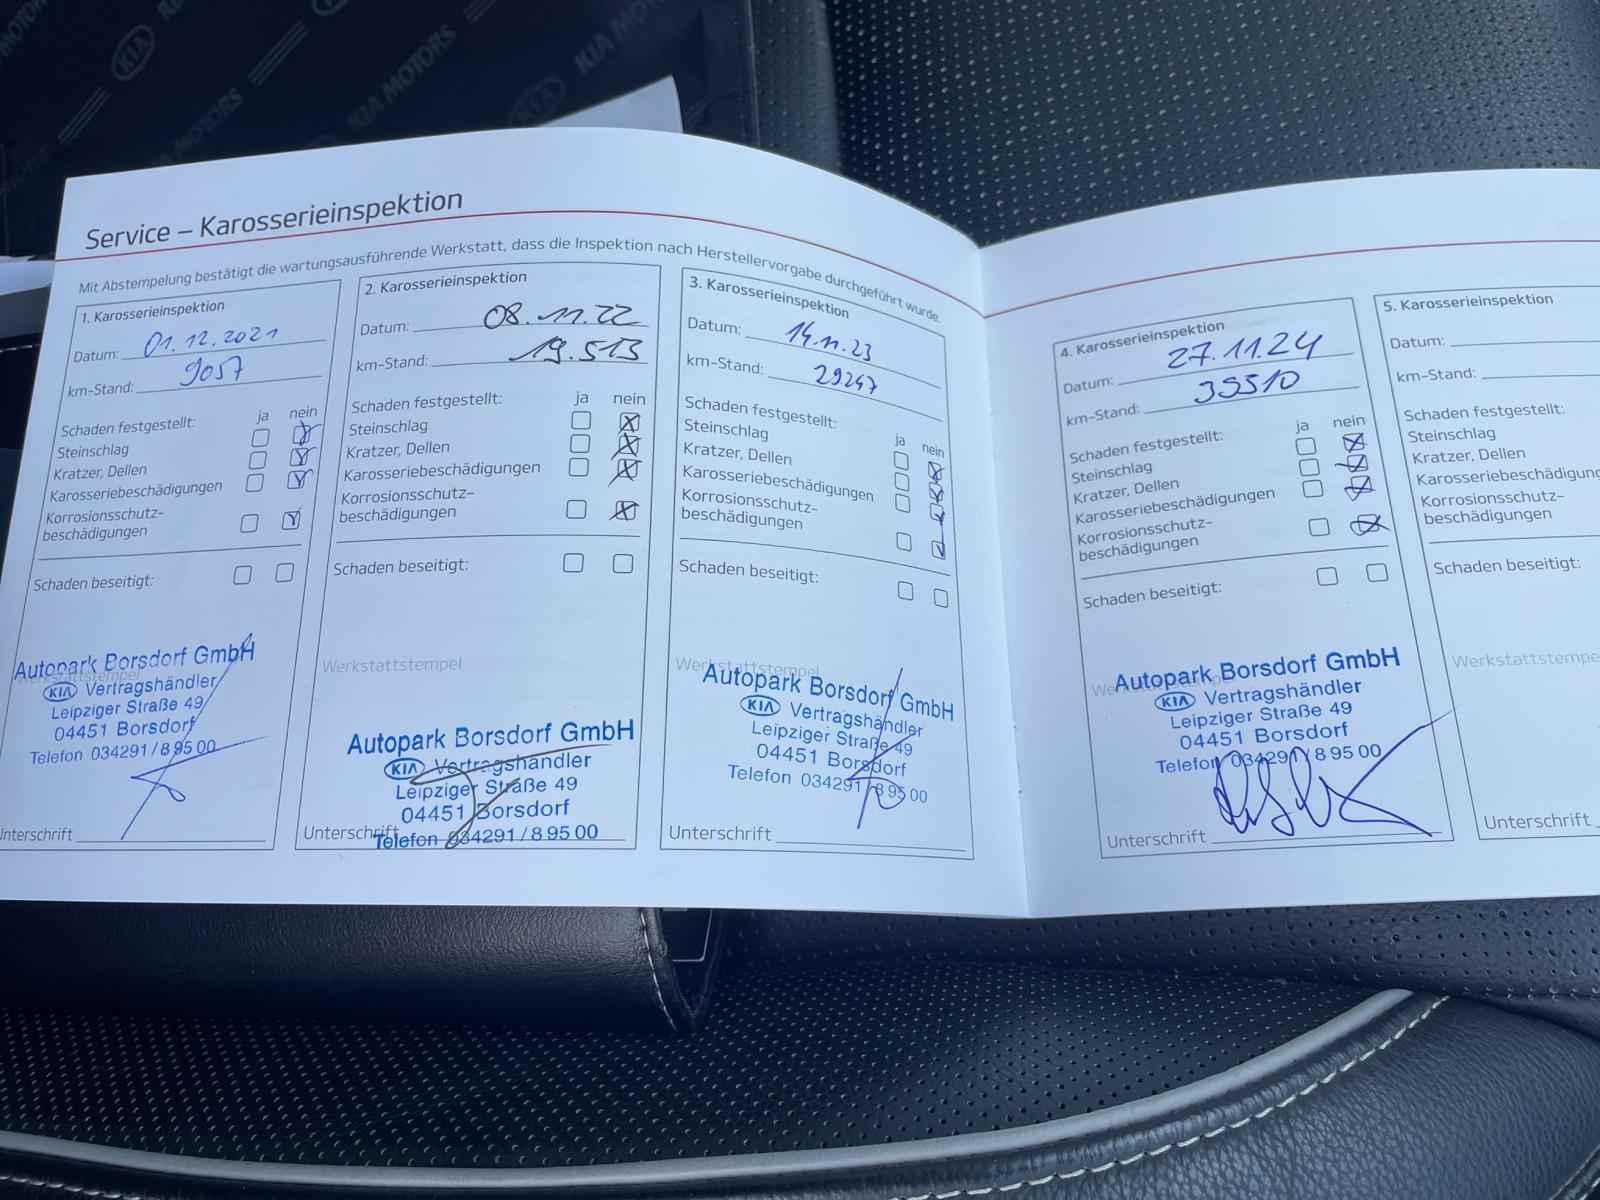 KIA MOTORS
KIA
KIA MOTORS
KIA
KIA MOTORS
Service – Karosserieinspektion
Mit Abstempelung bestätigt die wartungsausführende Werkstatt, dass die Inspektion nach Herstellervorgabe durchgeführt wurde.
1. Karosserieinspektion
Datum: 01.12.2021
km-Stand: 9057
ja nein
Schaden festgestellt:
Steinschlag
Kratzer, Dellen
Karosseriebeschädigungen
Korrosionsschutz-
beschädigungen
Schaden beseitigt:
Werkstattstempel
Autopark Borsdorf GmbH
KIA Vertragshändler
Leipziger Straße 49
04451 Borsdorf
Telefon 034291/8 95 00
Unterschrift
2. Karosserieinspektion
Datum: 08.11.22
km-Stand: 19.513
Schaden festgestellt: ja nein
Steinschlag
Kratzer, Dellen
Karosseriebeschädigungen
Korrosionsschutz-
beschädigungen
Schaden beseitigt:
Werkstattstempel
Autopark Borsdorf GmbH
KIA Vertragshändler
Leipziger Straße 49
04451 Borsdorf
Unterschrift
Telefon 034291/8 95 00
3. Karosserieinspektion
Datum: 14.11.23
km-Stand: 29247
Schaden festgestellt: ja nein
Steinschlag
Kratzer, Dellen
Karosseriebeschädigungen
Korrosionsschutz-
beschädigungen
Schaden beseitigt:
Werkstattstempel
Autopark Borsdorf GmbH
KIA Vertragshändler
Leipziger Straße 49
04451 Borsdorf
Telefon 034291/8 95 00
Unterschrift
4. Karosserieinspektion
Datum: 27.11.24
km-Stand:
Schaden festgestellt: ja nein
Steinschlag
Kratzer, Dellen
Karosseriebeschädigungen
Korrosionsschutz-
beschädigungen
Schaden beseitigt:
Autopark Borsdorf GmbH
KIA Vertragshändler
Leipziger Straße 49
04451 Borsdorf
Telefon 034291/8 95 00
Unterschrift
5. Karosserieinspektion
Datum:
km-Stand:
Schaden festgestellt:
Steinschlag
Kratzer, Dellen
Karosseriebeschädigung
Korrosionsschutz-
beschädigungen
Schaden beseitigt:
Werkstattstempe
Unterschrift